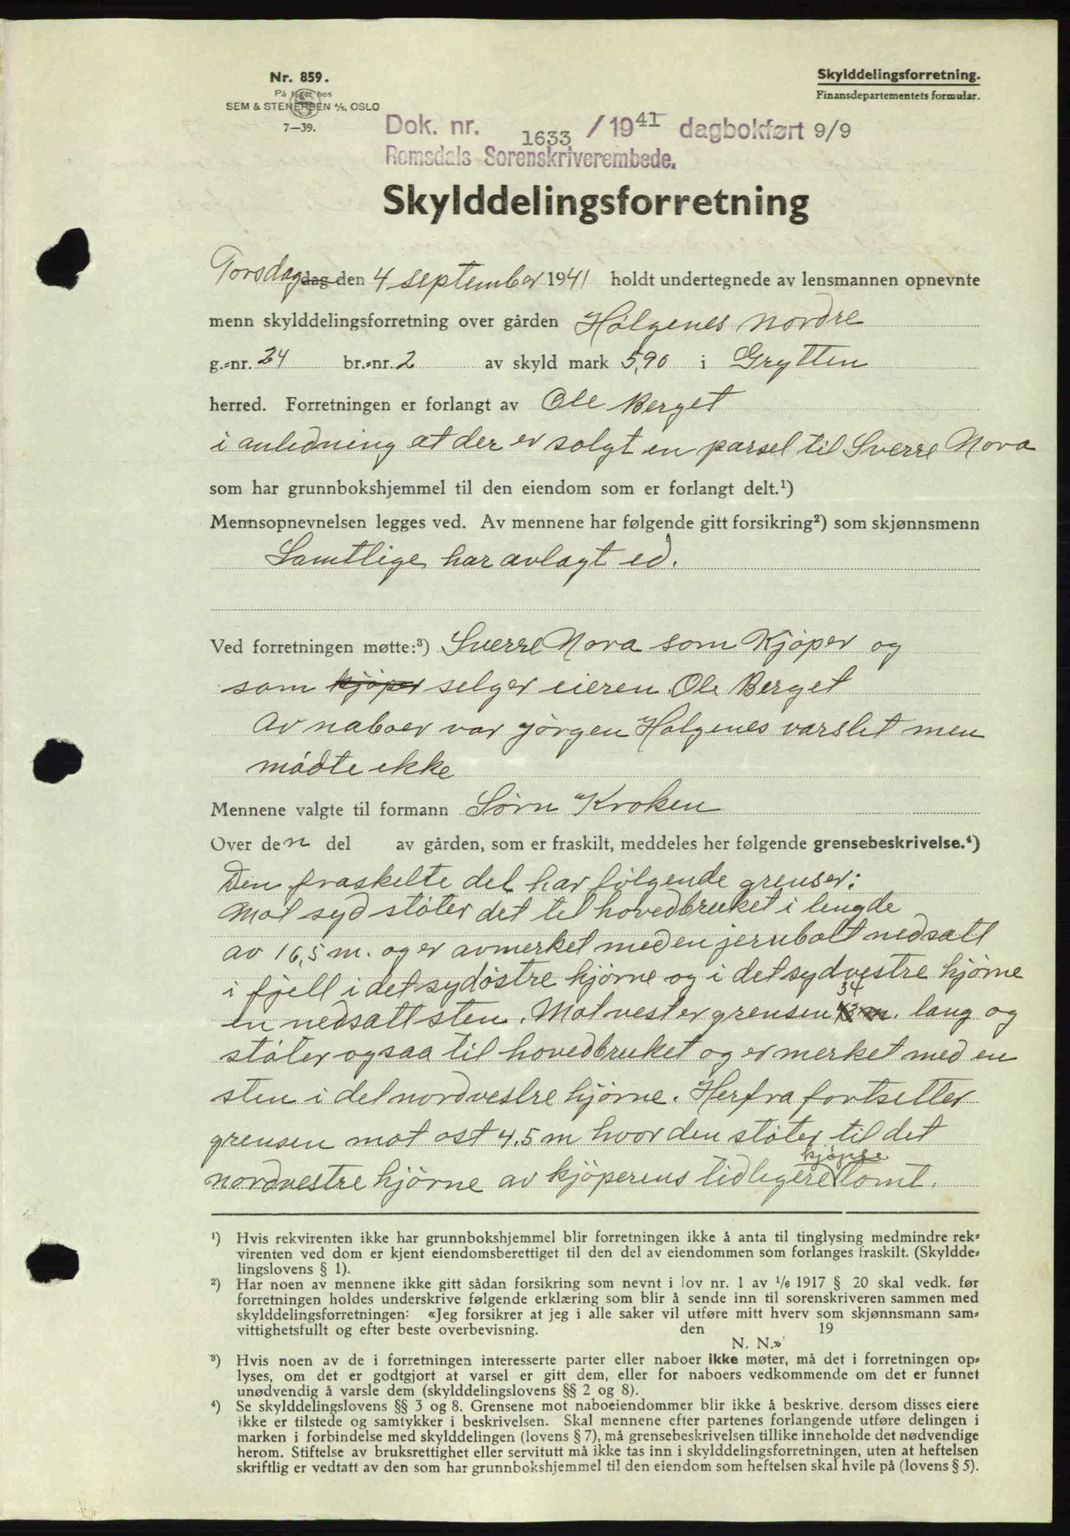 Nr. 859.
På lager hos
SEM & STENERSEN A/S. OSLO
7—39.
Skylddelingsforretning.
Finansdepartementets formular.
Dok. nr. 1633 / 1941 dagbokført 9/9
Romsdals Sorenskriverembede.
Skylddelingsforretning
Torsdag dag den 4 september 1941 holdt undertegnede av lensmannen opnevnte
menn skylddelingsforretning over gården Holgenes nordre
g.-nr. 24 br.-nr. 2 av skyld mark 5,90 i Grytten
herred. Forretningen er forlangt av Ole Berget
i anledning at der er solgt en parsel til Sverre Nora
som har grunnbokshjemmel til den eiendom som er forlangt delt.¹)
Mennsopnevnelsen legges ved. Av mennene har følgende gitt forsikring²) som skjønnsmenn
Samtlige har avlagt ed.
Ved forretningen møtte:³) Sverre Nora som Kjöper og
som kjöper selger eieren Ole Berget
Av naboer var Jörgen Holgenes varslet men
mödte ikke
Mennene valgte til formann Sörn Kroken
Over den del av gården, som er fraskilt, meddeles her følgende grensebeskrivelse.⁴)
Den fraskelte del har fölgende grenser:
Mot syd stöter det til hovedbruket i lengde
av 16,5 m. og er avmerket med en jernbolt nedsatt
i fjell i det sydöstre hjörne og i det sydvestre hjörne
en nedsatt sten. Mot vest er grensen 34 m. lang og
stöter ogsaa til hovedbruket og er merket med en
sten i det nordvestre hjörne. Herfra fortsetter
grensen mot ost 4.5 m hvor den stöter til det
nordvestre hjörne av kjöperens tidligere kjöpte tomt.
¹) Hvis rekvirenten ikke har grunnbokshjemmel blir forretningen ikke å anta til tinglysing medmindre rek-
virenten ved dom er kjent eiendomsberettiget til den del av eiendommen som forlanges fraskilt. (Skyldde-
lingslovens § 1).
²) Har noen av mennene ikke gitt sådan forsikring som nevnt i lov nr. 1 av 1/6 1917 § 20 skal vedk. før
forretningen holdes underskrive følgende erklæring som blir å sende inn til sorenskriveren sammen med
skylddelingsforretningen: «Jeg forsikrer at jeg i alle saker vil utføre mitt hverv som skjønnsmann sam-
vittighetsfullt og efter beste overbevisning. den 19
N. N.»
³) Hvis noen av de i forretningen interesserte parter eller naboer ikke møter, må det i forretningen op-
lyses, om det er godtgjort at varsel er gitt dem, eller for naboers vedkommende om det er funnet
unødvendig å varsle dem (skylddelingslovens §§ 2 og 8).
⁴) Se skylddelingslovens §§ 3 og 8. Grensene mot naboeiendommer blir ikke å beskrive, dersom disses eiere
ikke er tilstede og samtykker i beskrivelsen. Skal mennene efter partenes forlangende utføre delingen i
marken i forbindelse med skylddelingen (lovens § 7), må grensebeskrivelsen tillike inneholde det nødvendige
herom. Stiftelse av bruksrettighet eller servitutt må ikke tas inn i skylddelingsforretningen, uten at heftelsen
skriftlig er vedtatt av den som har grunnbokshjemmel til den eiendom som heftelsen skal hvile på (lovens § 5).